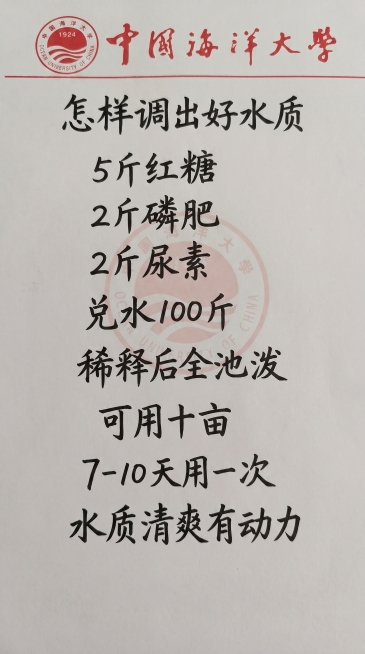 中国海洋大学
1924
OCEAN UNIVERSITY OF CHINA
怎样调出好水质
5斤红糖
2斤磷肥
2斤尿素
兑水100斤
稀释后全池泼
可用十亩
7-10天用一次
水质清爽有动力